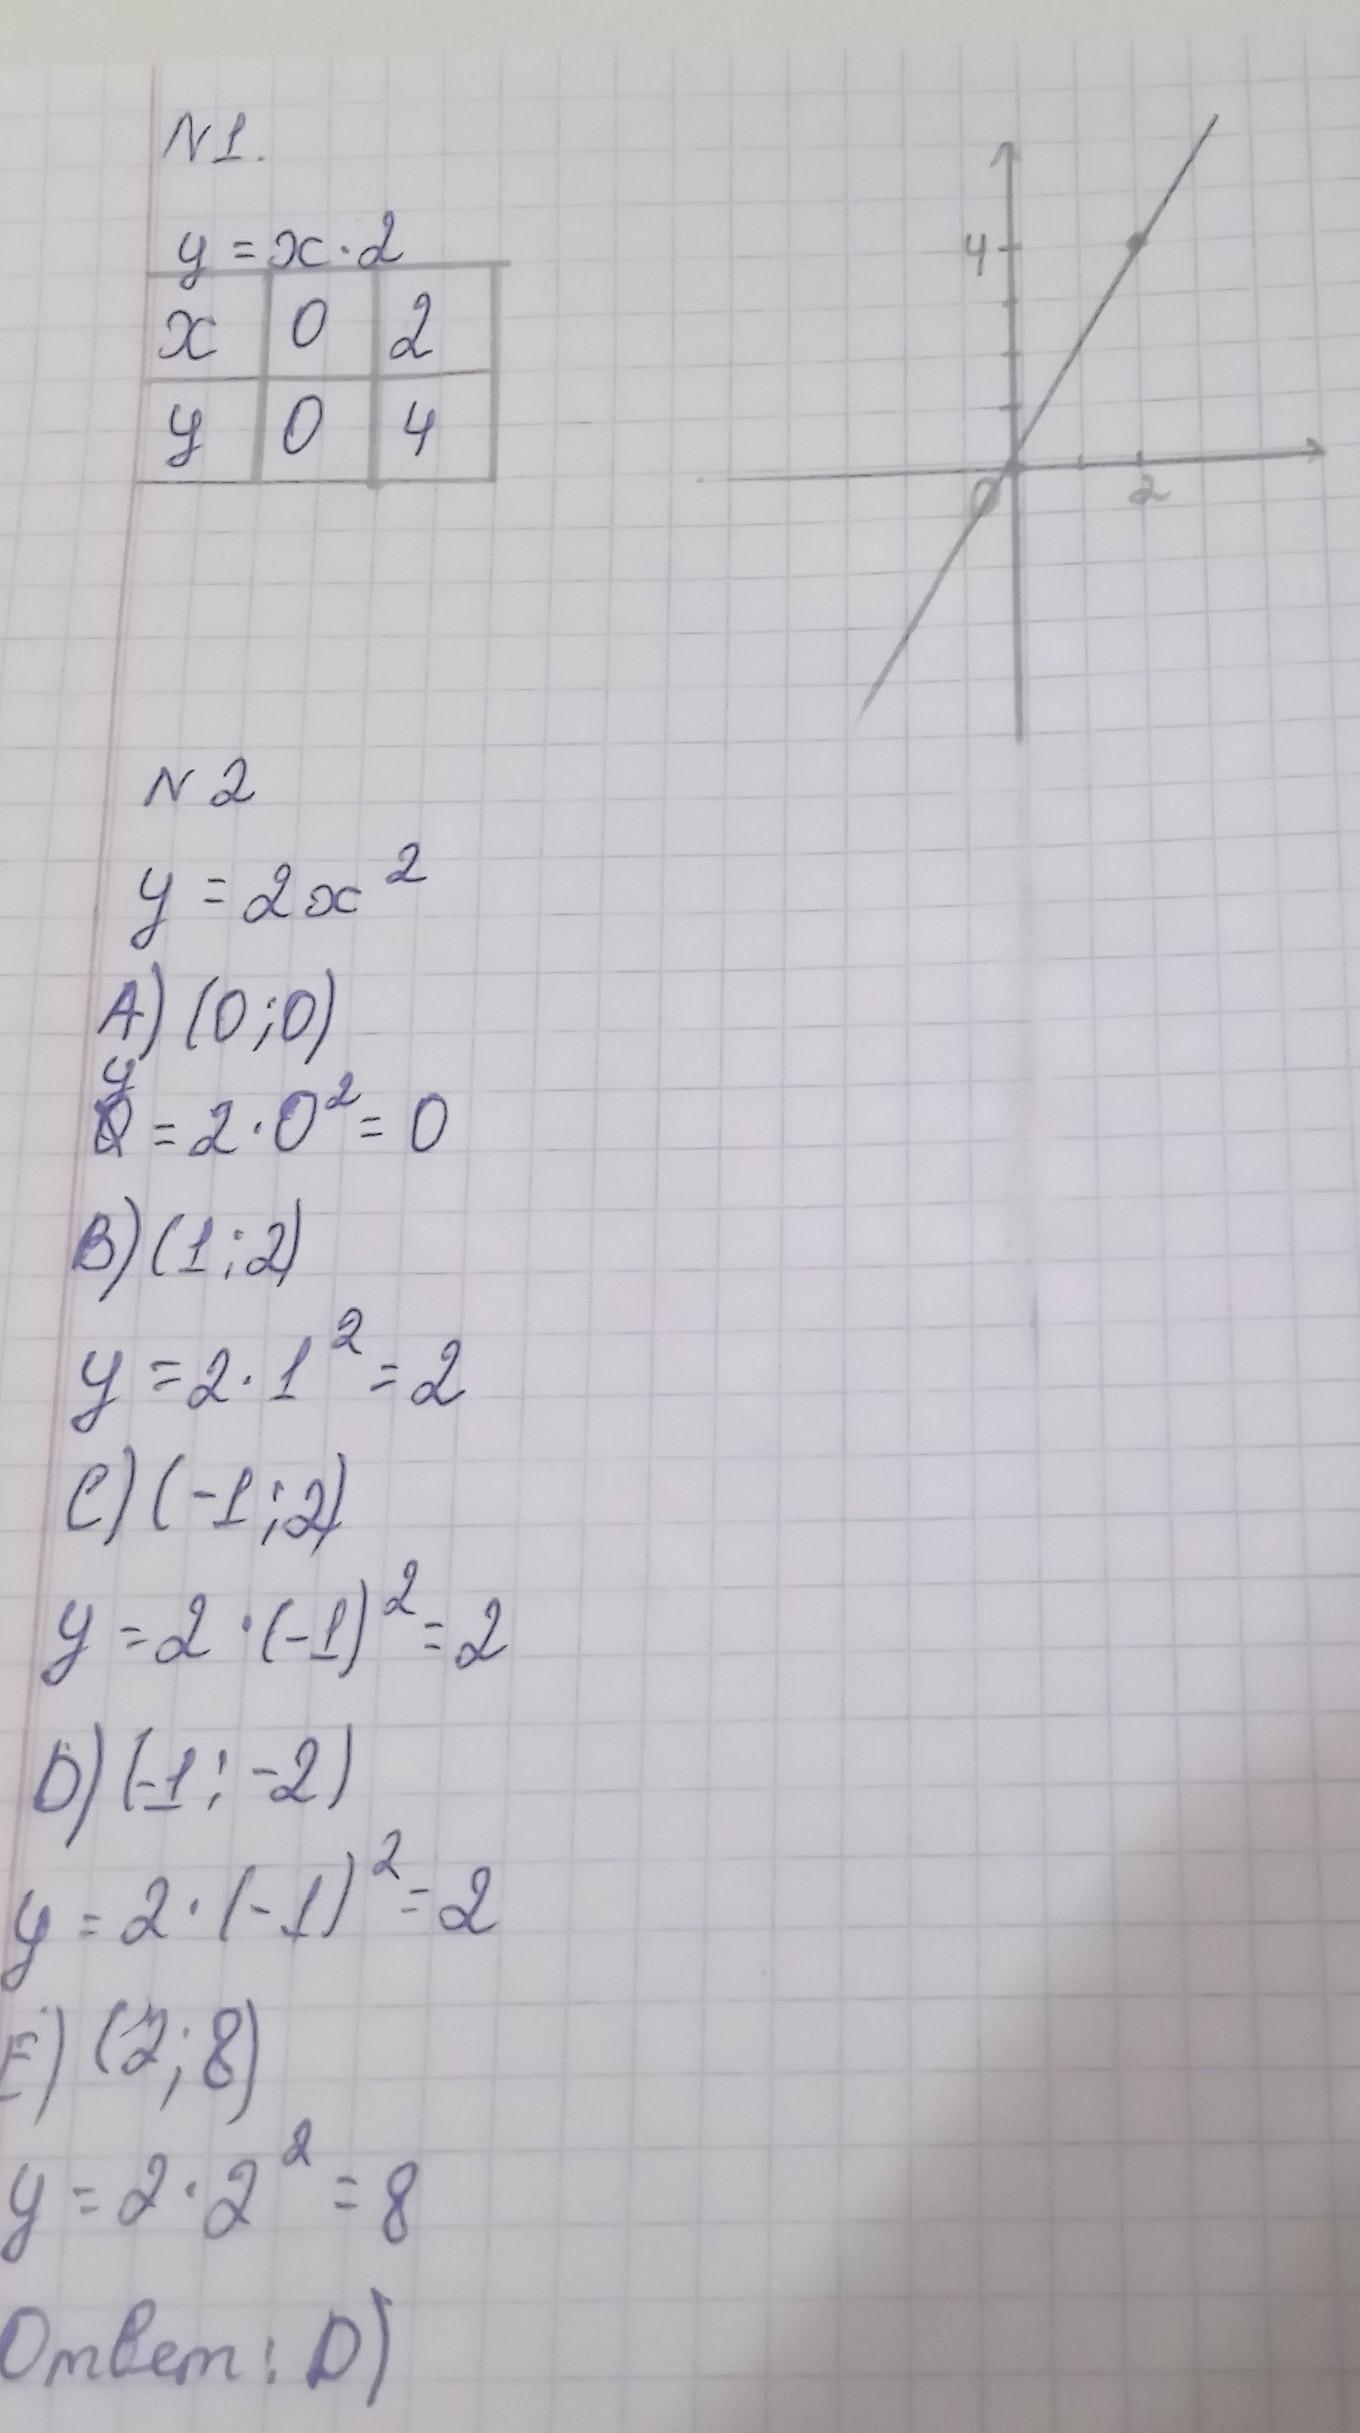 N1.
y = x · 2
x 0 2
y 0 4
4
0 2
N 2
y = 2x²
A) (0 ; 0)
y = 2 · 0² = 0
B) (1 ; 2)
y = 2 · 1² = 2
C) (-1 ; 2)
y = 2 · (-1)² = 2
D) (-1 ; -2)
y = 2 · (-1)² = 2
E) (2 ; 8)
y = 2 · 2² = 8
Ответ: D)